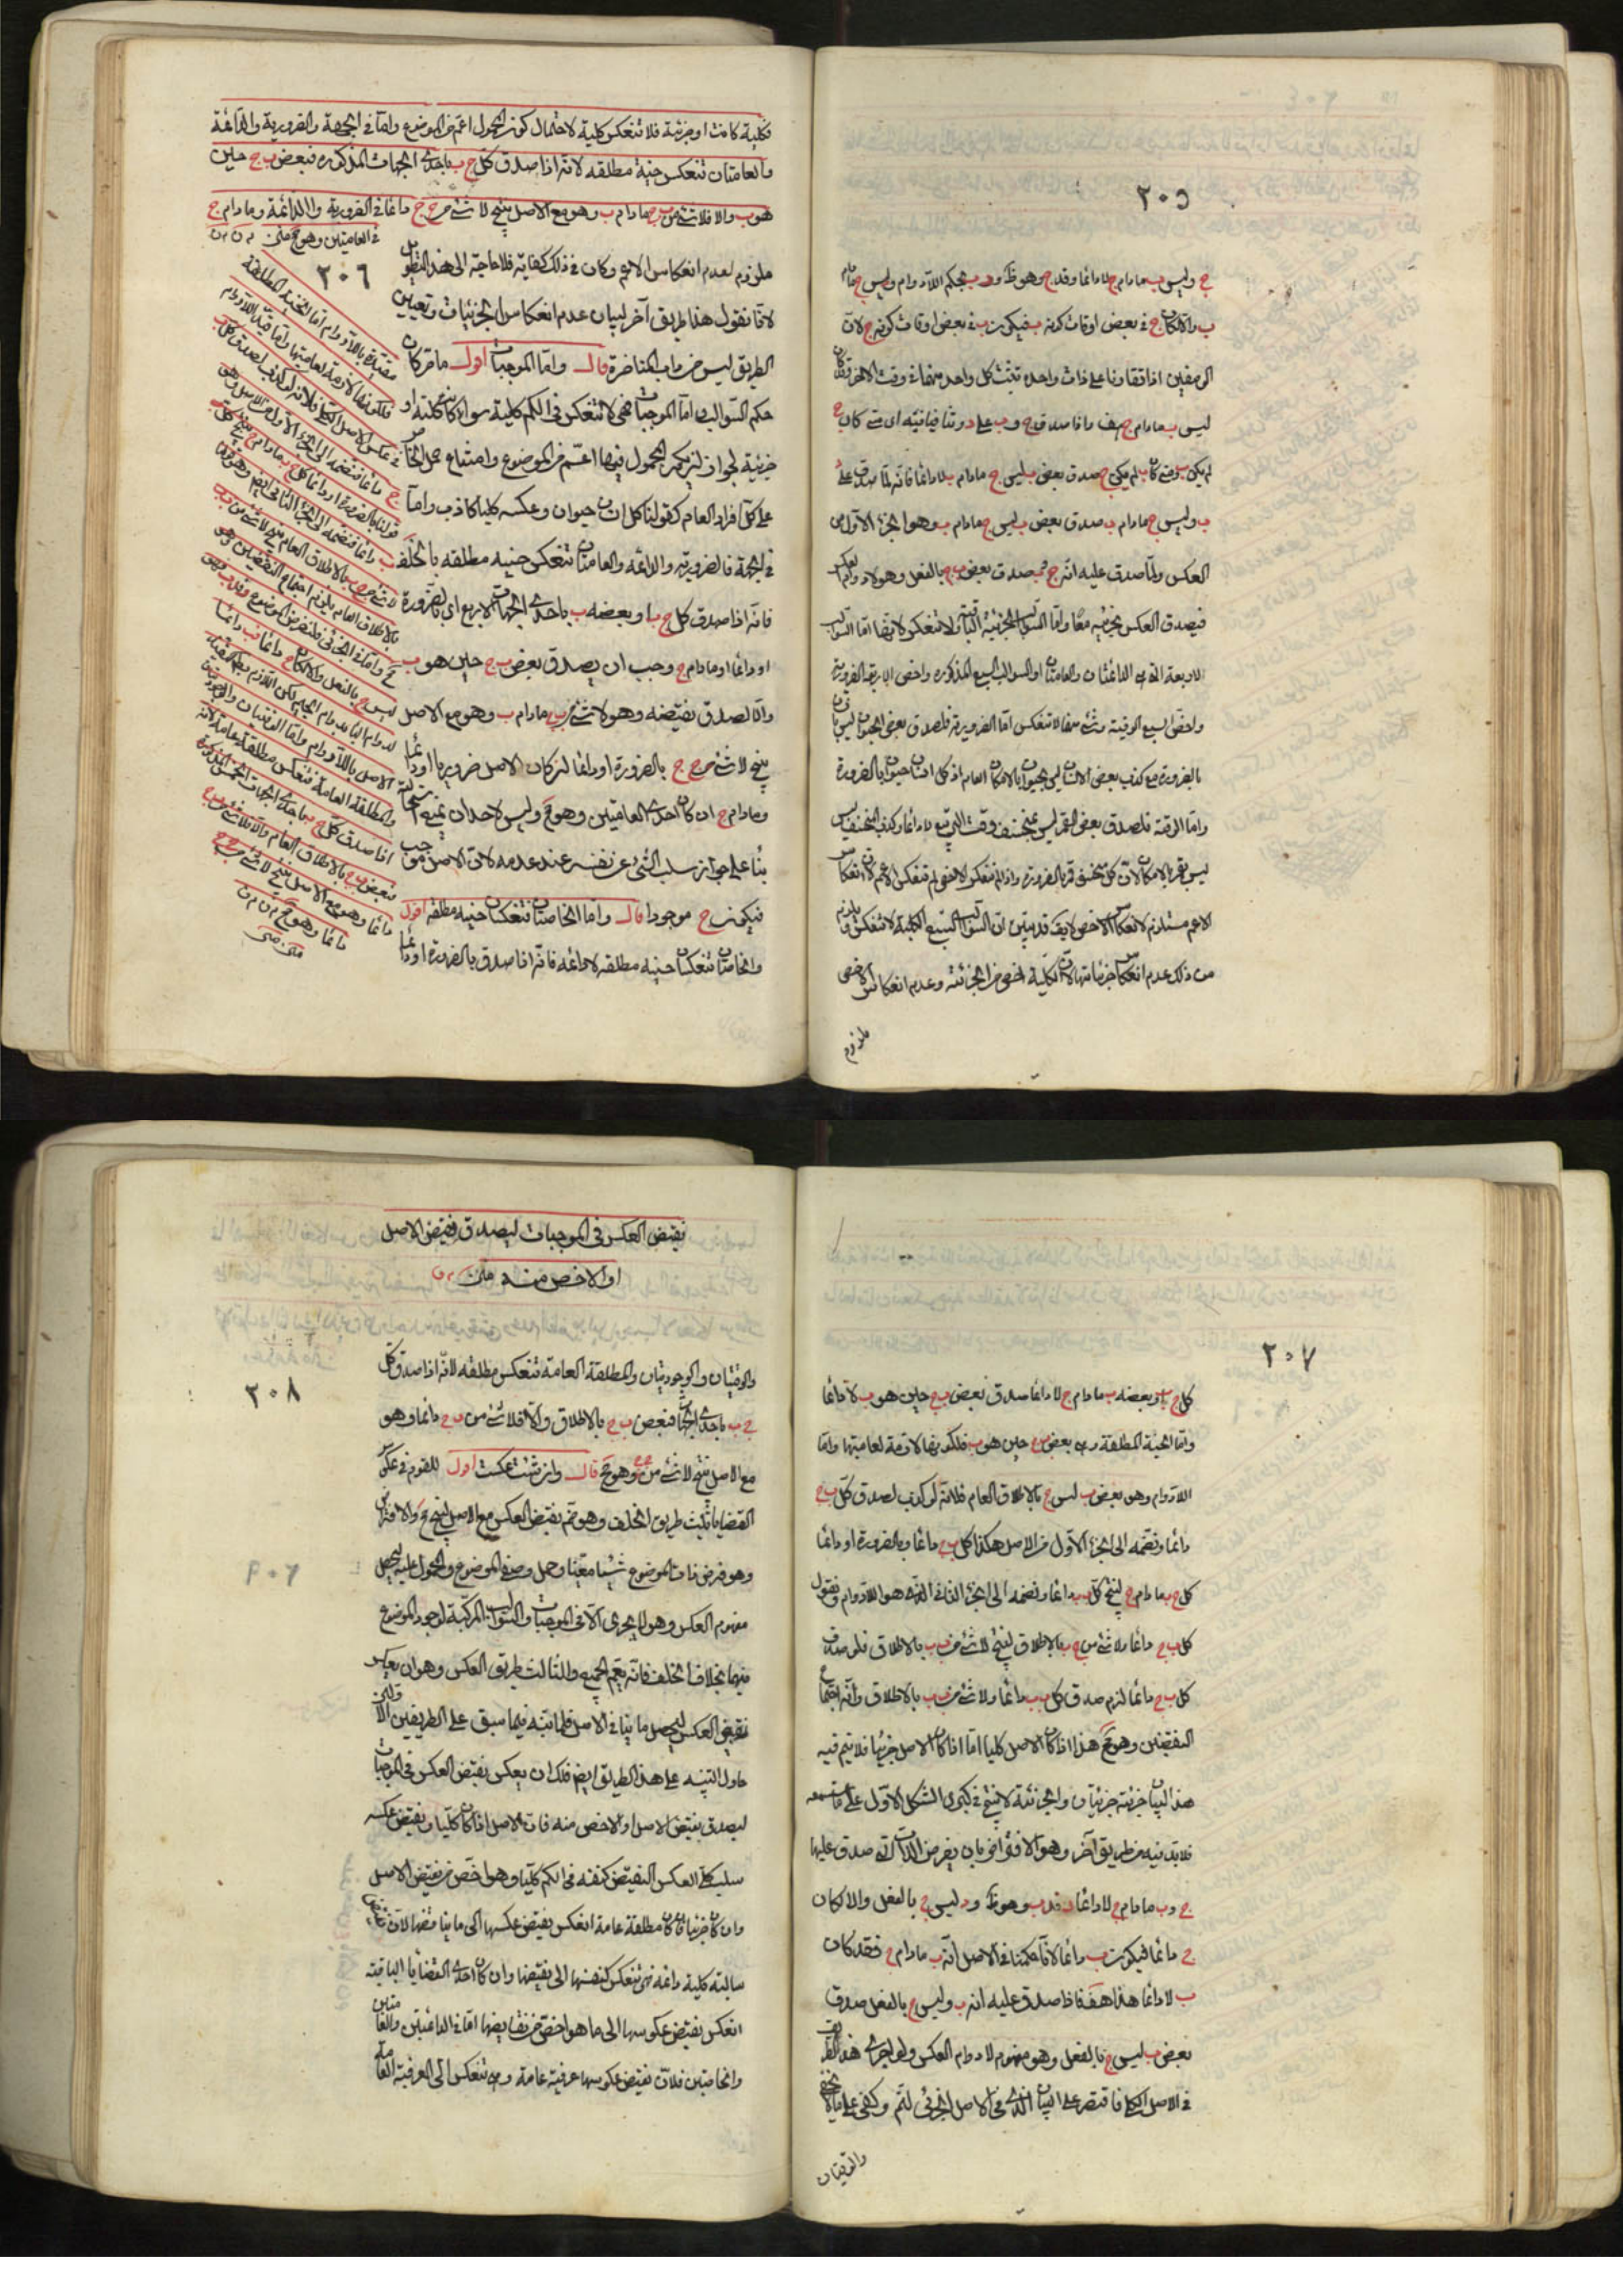 ٢٠٥
ج وليس ب مادام ج لا دائما وقد ج وهو ظ ود ب بحكم اللادوام وليس ج مادام
ب والا لكان ج في بعض اوقات كونه ب فيكون ب في بعض اوقات كونه ج لان
الوصفين اذا تقارنا على ذات واحدة تثبت كل واحد منهما في وقت الاخر وقد كان
ليس ب مادام ج هف واذا صدق ج و ب على د وتنافيا فيه اي متى كان ج
لم يكن ب ومتى كان ب لم يكن ج صدق بعض ب ليس ج مادام ب لا دائما فانه لما صدق على د
ب وليس ج مادام ب صدق بعض ب ليس ج مادام ب وهو الجزء الاول من
العكس ولما صدق عليه انه ج و ب صدق بعض ب ج بالفعل وهو لا دوام العكس
فيصدق العكس بجزئيه معا واما السوالب الجزئية الباقية ولا تنعكس لانها اما السوالب
الاربعة التي هي الدائمتان والعامتان او السوالب السبع المذكورة واخص الاربعة الضرورية
واخص السبع الوقتية وشئ منها لا تنعكس اما الضرورية فلصدق بعض الحيوان ليس بانسان
بالضرورة مع كذب بعض الانسان ليس بحيوان بالامكان العام اذ كل انسان حيوان بالضرورة
واما الوقتية فلصدق بعض القمر ليس بمنخسف وقت التربيع لا دائما وكذب بعض المنخسف ليس
ليس بقمر بالامكان لان كل منخسف قمر بالضرورة واذا لم تنعكس الاخص لم تنعكس الاعم لان انعكاس
الاعم مستلزم لانعكاس الاخص لا يق قد تبين ان السوالب السبع الكلية لا تنعكس ويلزم
من ذلك عدم انعكاس جزئياتها لان الكلية اخص من الجزئية وعدم انعكاس الاخص
ملزوم
فكلية كانت او جزئية فلا تنعكس كلية لاحتمال كون المحمول اعم من الموضوع واما في الجهة والضرورية والدائمة
والعامتان تنعكس حينية مطلقه لانه اذا صدق كل ج ب باحدى الجهات المذكوره فبعض ب ج حين
هو ب والا فلا شئ من ب ج مادام ب وهو مع الاصل ينتج لا شئ من ج ج دائما في الضرورية والدائمة ومادام ج
في العامتين وهو مح متن
٢٠٦
ملزوم لعدم انعكاس الاعم وكان في ذلك كفاية فلا حاجة الى هذا التطويل
لانا نقول هذا طريق آخر لبيان عدم انعكاس الجزئيات وتعيين
الطريق ليس من داب المناظرة قال واما الموجبات اقول ما مر كان
حكم السوالب اما الموجبات فهي لا تنعكس في الكم كلية سواء كانت كلية او
جزئية لجواز ان يكون المحمول فيها اعم من الموضوع وامتناع حمل الخاص
على كل افراد العام كقولنا كل انسان حيوان وعكسه كليا كاذب واما
في الجهة فالضرورية والدائمة والعامتان تنعكس حينيه مطلقه بالخلف
فانه اذا صدق كل ج ب او بعضه ب باحدى الجهات الاربع اي بالضرورة
او دائما او مادام ج وجب ان يصدق بعض ب ج حين هو ب
والا لصدق نقيضه وهو لا شئ من ب ج مادام ب وهو مع الاصل
ينتج لا شئ من ج ج بالضرورة او دائما ان كان الاصل ضروريا او دائما
ومادام ج ان كان احدى العامتين وهو مح وليس لاحد ان يمنع استحالته
بناء على جواز سلب الشئ عن نفسه عند عدمه لان الاصل موجب
فيكون ج موجودا قال واما الخاصتان تنعكسان حينيه مطلقه اقول
والخاصتان تنعكسان حينيه مطلقه لا دائمه فانه اذا صدق بالضرورة او دائما
مقيدة باللادوام اما الحينية المطلقة
فلكونها لازمة لعامتيها واما قيد اللادوام
في عكس الاصل الكلي فلانه لو كذب لصدق كل ب
ج دائما فنضمه الى الجزء الاول من الاصل وهو
قولنا بالضرورة او دائما كل ج ب مادام ج ينتج كل
ب ب دائما فنضمه الى الجزء الثاني ايضا وهو قولنا
لا شئ من ج ب بالاطلاق العام ينتج لا شئ من ب ب
بالاطلاق العام يلزم اجتماع النقيضين وهو
مح واما في الجزئي فلنفرض الموضوع د فهو
ليس ج بالفعل والا لكان ج دائما فب دائما
لدوام الباء بدوام الجيم لكن اللازم بط لنفيه
الاصل باللادوام واما الوقتيتان والوجوديتان
والمطلقة العامة فتنعكس مطلقة عامة لانه
اذا صدق كل ج ب باحدى الجهات الخمس المذكورة
فبعض ب ج بالاطلاق العام والا فلا شئ من ب ج
دائما وهو مع الاصل ينتج لا شئ من ج ج
دائما وهو مح
٢٠٧
كل ج ب او بعضه ب مادام ج لا دائما صدق بعض ب ج حين هو ب لا دائما
واما الحينية المطلقة وهي بعض ب ج حين هو ب فلكونها لازمة لعامتيها واما
اللادوام وهو بعض ب ليس ج بالاطلاق العام فلانه لو كذب لصدق كل ب ج
دائما ونضمه الى الجزء الاول من الاصل هكذا كل ب ج دائما وبالضرورة او دائما
كل ج ب مادام ج لينتج كل ب ب دائما ونضمه الى الجزء الثاني الذي هو اللادوام ونقول
كل ب ج دائما ولا شئ من ج ب بالاطلاق لينتج لا شئ من ب ب بالاطلاق فلو صدق
كل ب ج دائما لزم صدق كل ب ب دائما ولا شئ من ب ب بالاطلاق وانه اجتماع
النقيضين وهو مح هذا اذا كان الاصل كليا اما اذا كان الاصل جزئيا فلا يتم فيه
هذا البيان جزئيه جزئيتان والجزئية لا ينتج في كبرى الشكل الاول على ما ستسمعه
فلا بد فيه من طريق آخر وهو الافتراض بان يفرض الذات التي صدق عليها
ج و ب مادام ج لا دائما د فد ب وهو ظ ود ليس ج بالفعل والا لكان
ج دائما فيكون ب دائما لانا حكمنا في الاصل انه ب مادام ج فقد كان
ب لا دائما هذا هف فاذا صدق عليه انه ب وليس ج بالفعل صدق
بعض ب ليس ج بالفعل وهو مفهوم لا دوام العكس ولو اجرى هذا الطريق
في الاصل الكلي او اقتصر على البيان الذي في الاصل الجزئي لتم وكفى على ما لا يخفى
والوقتيتان
نقيض العكس في الموجبات ليصدق نقيض الاصل
او الاخص منه متن
٢٠٨
والوقتيتان والوجوديتان والمطلقة العامة تنعكس مطلقه لانه اذا صدق كل
ج ب باحدى الجهات فبعض ب ج بالاطلاق والا فلا شئ من ب ج دائما وهو
مع الاصل ينتج لا شئ من ج ج وهو مح قال وان شئت عكست اقول للقوم في عكس
القضايا ثلث طريق الخلف وهو ضم نقيض العكس مع الاصل لينتج مح والافتراض
وهو فرض ذات الموضوع شيئا معينا وحمل وصفي الموضوع والمحمول عليه ليحصل
مفهوم العكس وهو لا يجري الا في الموجبات والسوالب المركبة لوجود الموضوع
فيهما بخلاف الخلف فانه يعم الجميع والثالث طريق العكس وهو ان يعكس
نقيض العكس ليحصل ما ينافي الاصل فلما نبه فيما سبق على الطريقين الاولين
حاول التنبيه على هذا الطريق ايضا فلك ان يعكس نقيض العكس في الموجبات
ليصدق نقيض الاصل او الاخص منه فان الاصل اذا كان كليا ونقيض عكسه
سلب كلي انعكس النقيض كنفسه في الكم كليا وهو اخص من نقيض الاصل
وان كان جزئيا فان كان مطلقة عامة انعكس نقيض عكسها الى ما يناقضها لان نقيض
سالبة كلية دائمة فهي تنعكس كنفسها الى نقيضها وان كان احدى القضايا الباقية
انعكس نقيض عكوسها الى ما هو اخص من نقايضها اما في الدائمتين والعامتين
والخاصتين فلان نقيض عكوسها عرفية عامة وهي تنعكس الى العرفية العامة